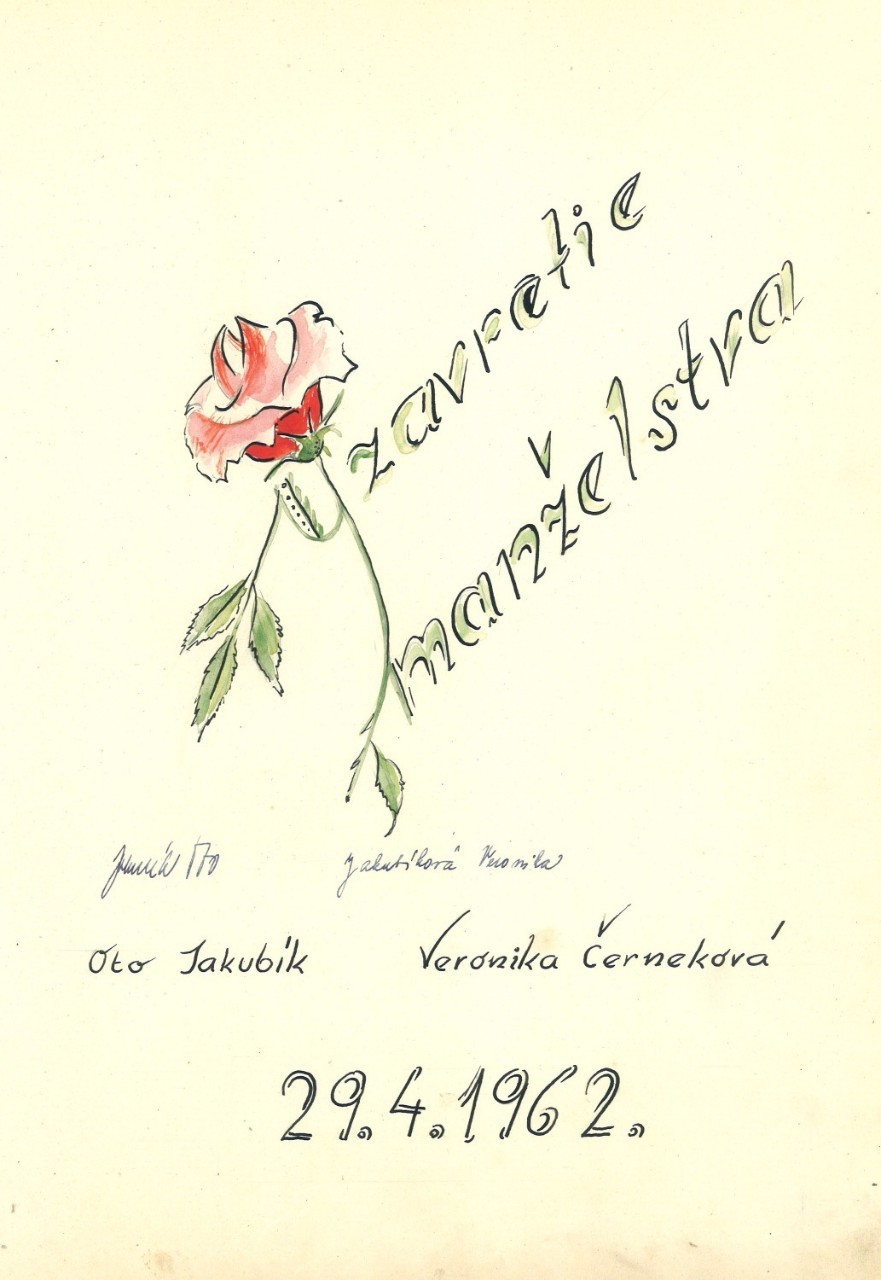 zavretie
manželstva
Oto Jakubíková Veronika
Oto Jakubík Veronika Černeková
29.4.1962.